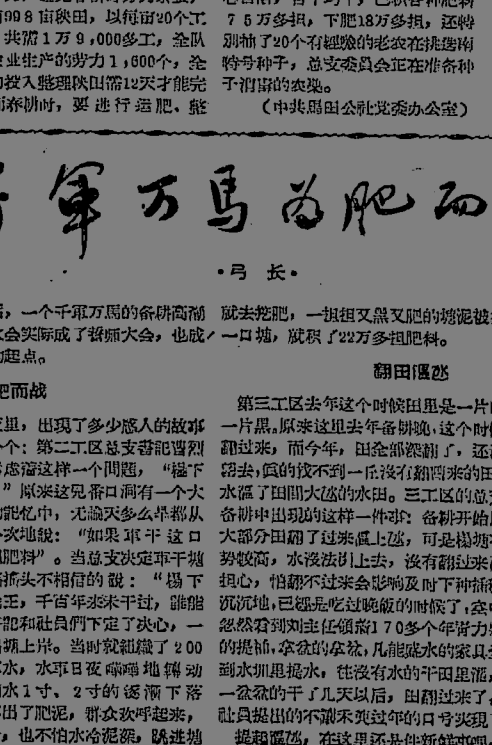 998亩秧田，以每亩20个工
共需1万9,000多工，全队
业生产的劳力1,600个，全
投入整理秧田需12天才能完
春耕时，要进行运肥、整
75万多担，下肥18万多担，还特
别抽了20个有经验的老农在挑选南
特号种子，总支委员会正在准备种
子消毒的农药。
（中共马田公社党委办公室）
军万马为肥而
·弓 长·
一个千军万马的备耕高潮
大会实际成了誓师大会，也成
起点。
肥而战
里，出现了多少感人的故事
个：第二工区总支书记曹烈
这样一个问题，“榻下
”原来这儿番口洞有一个大
记忆中，无论天多么旱都从
次地说：“如果车干这口
肥料”。当总支决定车干塘
摇头不相信的说：“榻下
王，千百年来未干过，谁能
记和社员们下定了决心，一
塘上岸。当时就组织了200
水，水车日夜 地转动
水1寸、2寸的逐渐下落
出了肥泥，群众欢呼起来，
，也不怕水冷泥深，跳进塘
就去挖肥，一担担又黑又肥的塘泥被
一口塘，就积了22万多担肥料。
翻田沤氹
第三工区去年这个时候田里是一片
一片黑。原来这里去年备耕晚，这个时
翻过来，而今年，田全部深翻了，还
去，真的找不到一丘没有翻过来的田
水沤了田间大氹的水田。三工区的总支
备耕中出现的这样一件事：备耕开始
大部分田翻了过来沤上氹，可是榻塘
势较高，水没法引上去，没有翻过来
担心，怕翻不过来会影响及时下种插
沉沉地，已经是吃过晚饭的时候了，突
忽然看到刘主任领着170多个年青力
的提桶，拿盆的拿盆，凡能盛水的家具
到水圳里提水，往没有水的干田里洒，
一盆盆的干了几天以后，田翻过来了，
社员提出的不翻禾兜过年的口号实现
提起沤氹，在这里还是件新鲜事